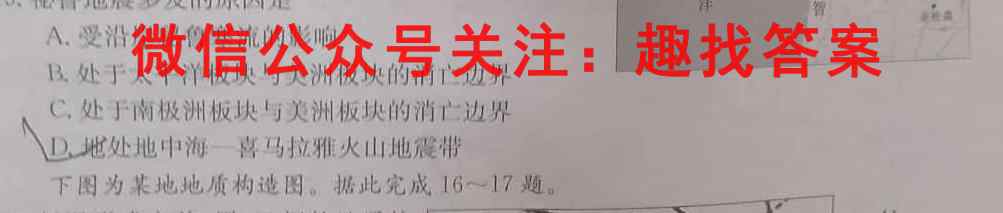 秘鲁地震多发的原因是
洋
智
A. 受沿岸秘鲁寒流的影响
微信公众号关注：趣找答案
B. 处于太平洋板块与美洲板块的消亡边界
C. 处于南极洲板块与美洲板块的消亡边界
D. 地处地中海—喜马拉雅火山地震带
下图为某地地质构造图。据此完成16～17题。